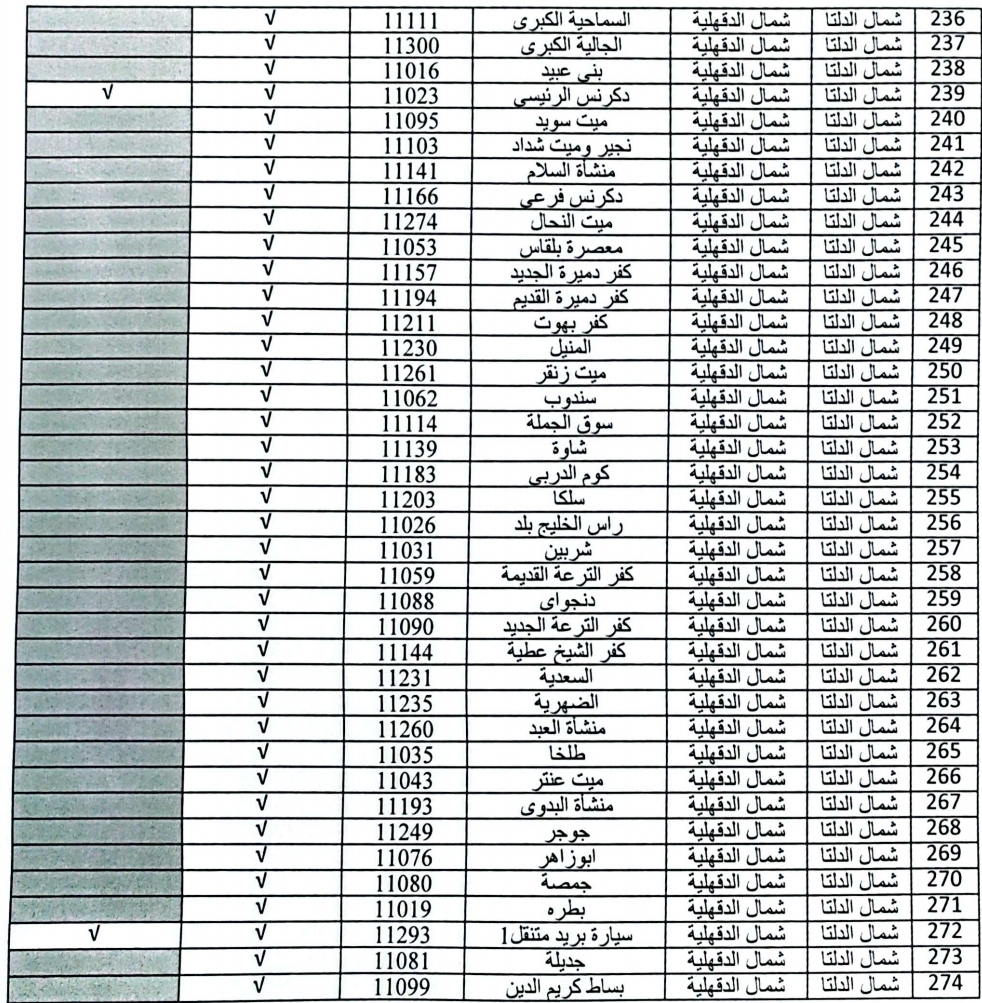 236 شمال الدلتا شمال الدقهلية السماحية الكبرى 11111 √
237 شمال الدلتا شمال الدقهلية الجالية الكبرى 11300 √
238 شمال الدلتا شمال الدقهلية بني عبيد 11016 √
239 شمال الدلتا شمال الدقهلية دكرنس الرئيسى 11023 √ √
240 شمال الدلتا شمال الدقهلية ميت سويد 11095 √
241 شمال الدلتا شمال الدقهلية نجير وميت شداد 11103 √
242 شمال الدلتا شمال الدقهلية منشأة السلام 11141 √
243 شمال الدلتا شمال الدقهلية دكرنس فرعى 11166 √
244 شمال الدلتا شمال الدقهلية ميت النحال 11274 √
245 شمال الدلتا شمال الدقهلية معصرة بلقاس 11053 √
246 شمال الدلتا شمال الدقهلية كفر دميرة الجديد 11157 √
247 شمال الدلتا شمال الدقهلية كفر دميرة القديم 11194 √
248 شمال الدلتا شمال الدقهلية كفر بهوت 11211 √
249 شمال الدلتا شمال الدقهلية المنيل 11230 √
250 شمال الدلتا شمال الدقهلية ميت زنقر 11261 √
251 شمال الدلتا شمال الدقهلية سندوب 11062 √
252 شمال الدلتا شمال الدقهلية سوق الجملة 11114 √
253 شمال الدلتا شمال الدقهلية شاوة 11139 √
254 شمال الدلتا شمال الدقهلية كوم الدربى 11183 √
255 شمال الدلتا شمال الدقهلية سلكا 11203 √
256 شمال الدلتا شمال الدقهلية راس الخليج بلد 11026 √
257 شمال الدلتا شمال الدقهلية شربين 11031 √
258 شمال الدلتا شمال الدقهلية كفر الترعة القديمة 11059 √
259 شمال الدلتا شمال الدقهلية دنجواى 11088 √
260 شمال الدلتا شمال الدقهلية كفر الترعة الجديد 11090 √
261 شمال الدلتا شمال الدقهلية كفر الشيخ عطية 11144 √
262 شمال الدلتا شمال الدقهلية السعدية 11231 √
263 شمال الدلتا شمال الدقهلية الضهرية 11235 √
264 شمال الدلتا شمال الدقهلية منشأة العبد 11260 √
265 شمال الدلتا شمال الدقهلية طلخا 11035 √
266 شمال الدلتا شمال الدقهلية ميت عنتر 11043 √
267 شمال الدلتا شمال الدقهلية منشأة البدوى 11193 √
268 شمال الدلتا شمال الدقهلية جوجر 11249 √
269 شمال الدلتا شمال الدقهلية ابوزاهر 11076 √
270 شمال الدلتا شمال الدقهلية جمصة 11080 √
271 شمال الدلتا شمال الدقهلية بطره 11019 √
272 شمال الدلتا شمال الدقهلية سيارة بريد متنقل1 11293 √ √
273 شمال الدلتا شمال الدقهلية جديلة 11081 √
274 شمال الدلتا شمال الدقهلية بساط كريم الدين 11099 √